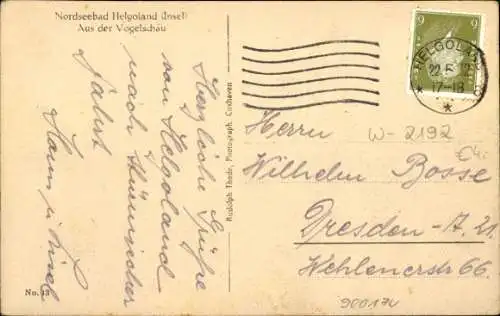 Nordseebad Helgoland (Insel)
Aus der Vogelschau
Herzliche Grüße
von Helgoland
nach stürmischer
Fahrt
No. 13
Rudolph Thode, Photograph, Cuxhaven
9 9
HELGOLAND
17-18
Herrn
W-2192
€4.-
Wilhelm Bosse
Dresden-A. 21
Wehlenerstr 66.
900174